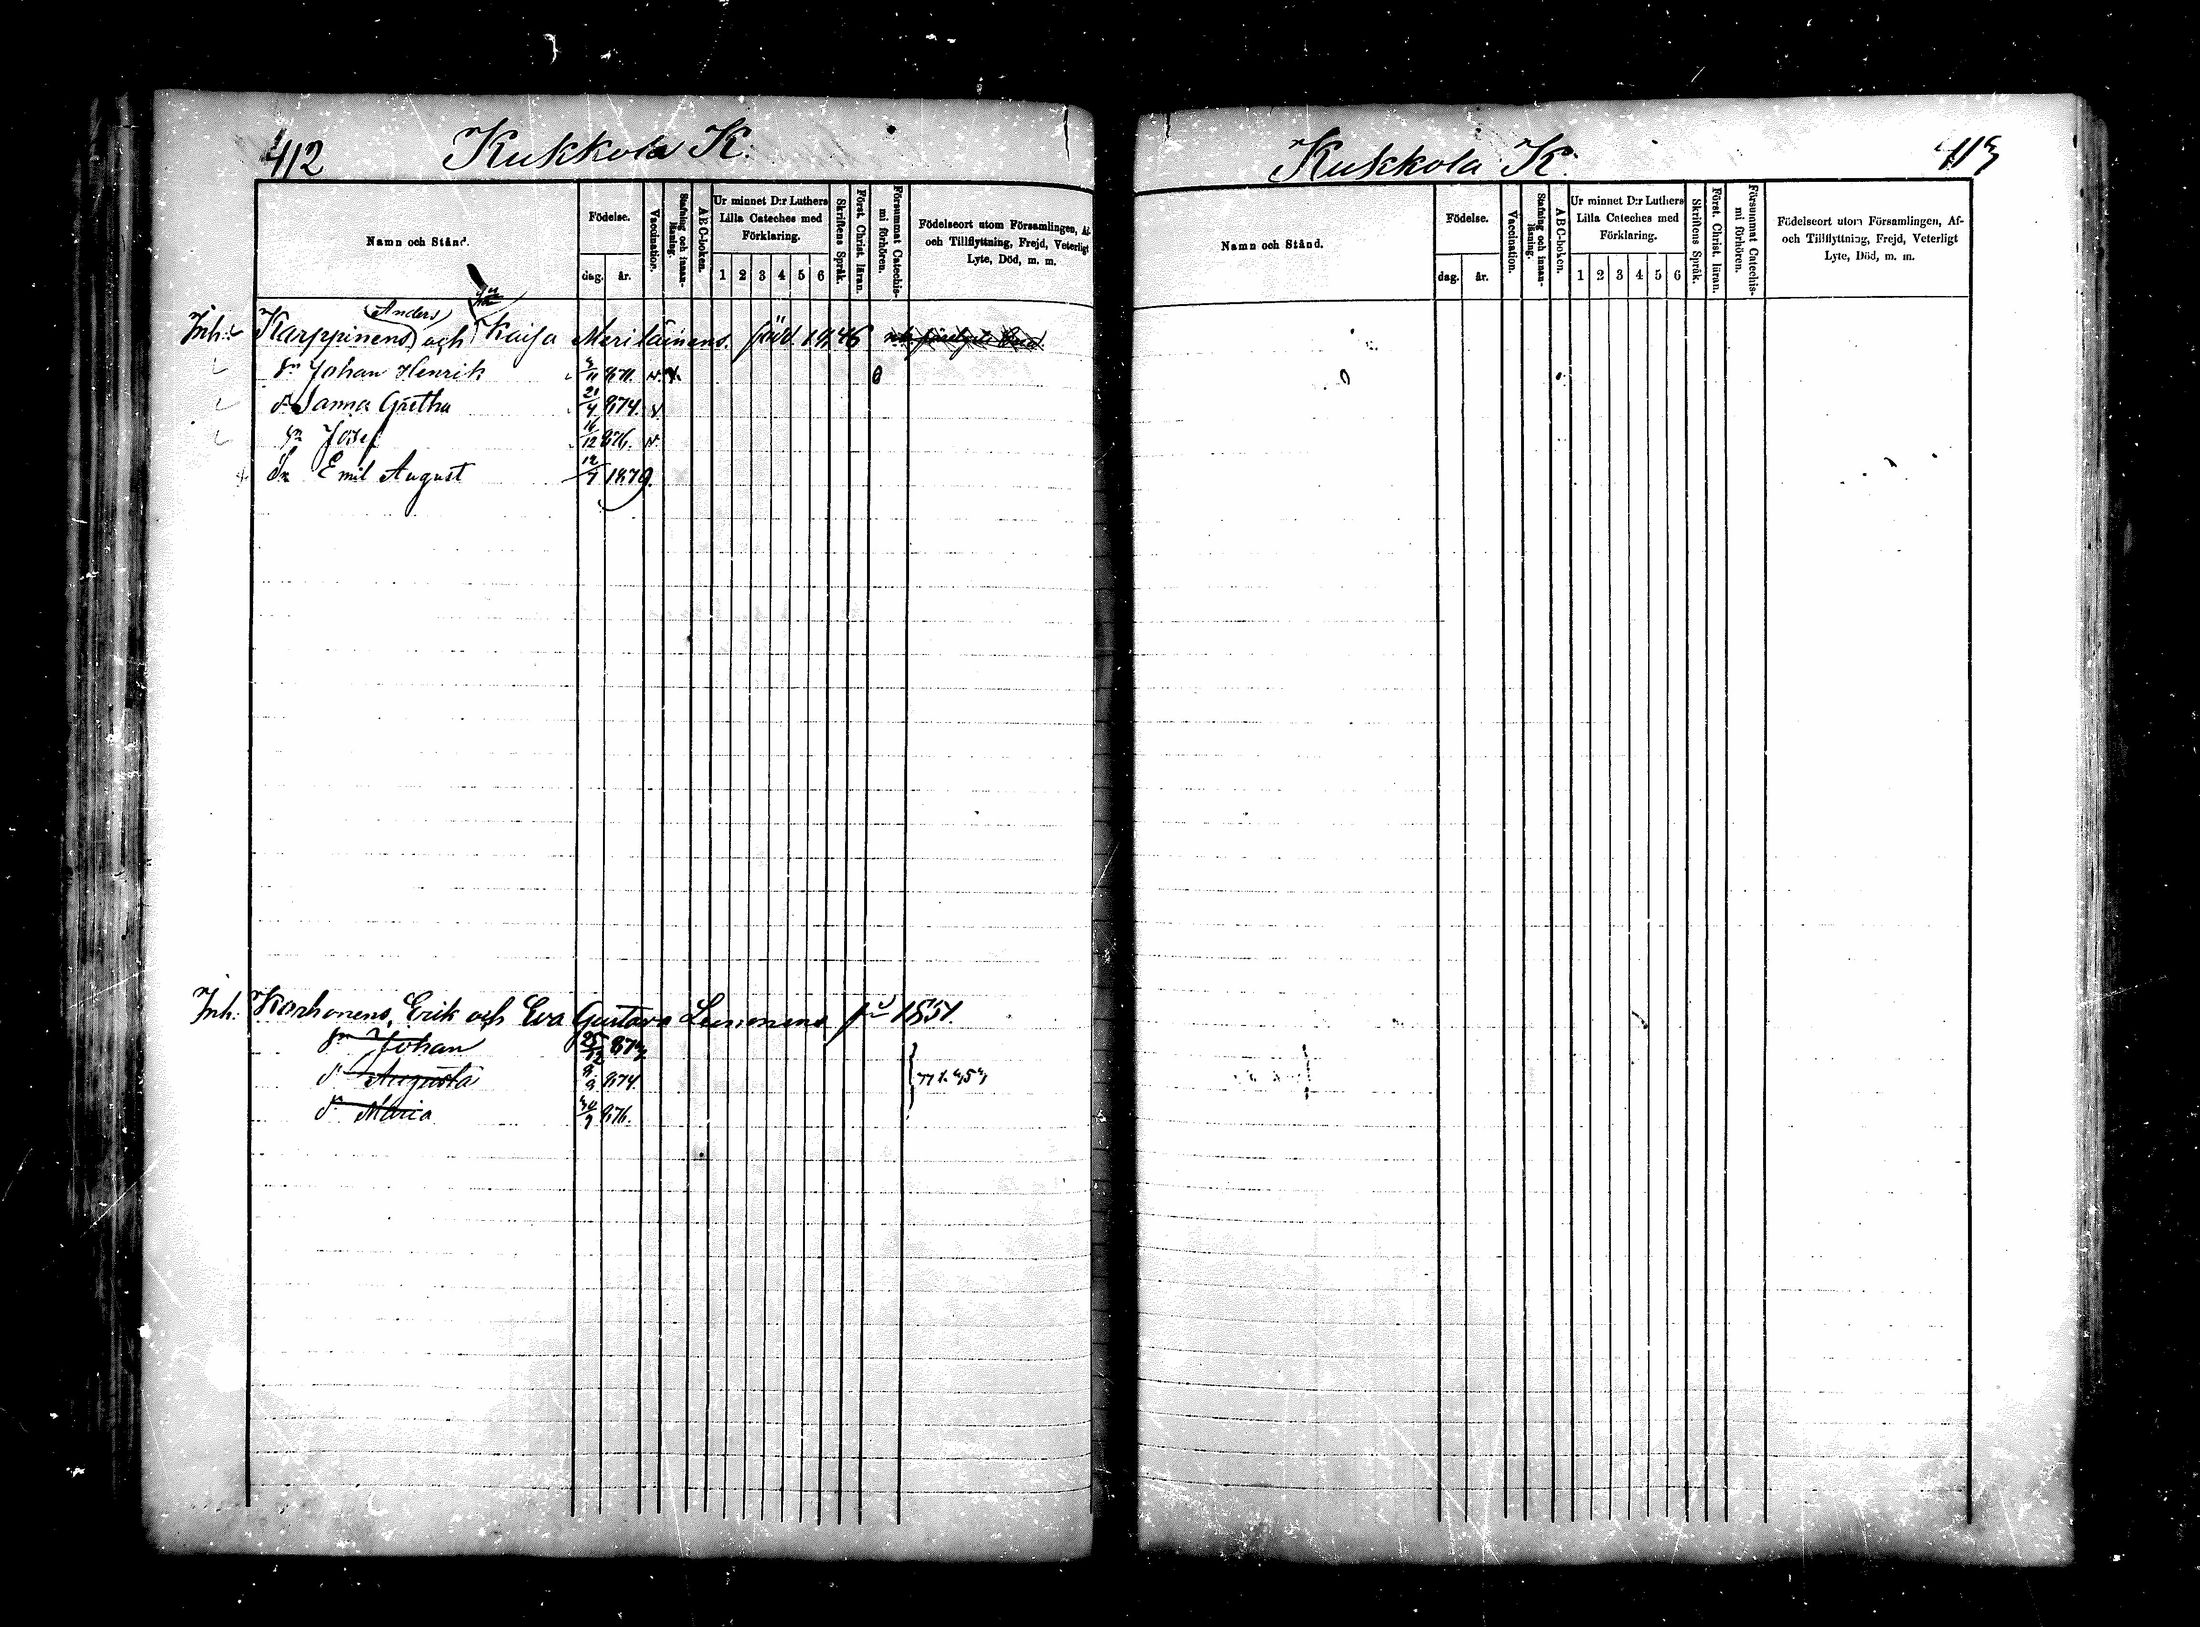 412 Kukkola K.
Namn och Stånd.
Födelse.
dag. år.
Vaccination.
Stafning och innan-läsning.
A B C-boken.
Ur minnet D:r Luthers
Lilla Cateches med
Förklaring.
1 2 3 4 5 6
Skriftens Språk.
Först. Christ. läran.
Försummat Catechis-
mi förhören.
Födelseort utom Församlingen, Af-
och Tillflyttning, Frejd, Veterligt
Lyte, Död, m. m.
Anders
Inh: Karppinens och Kaisa Meriläinens. född 1846
Sn Johan Henrik 3/11 871. v. x
dr Sanna Gretha 21/4 874. v.
Sn Josef 16/12 876. v.
Sn Emil August 12/7 1879.
Inh: Korhonens, Erik och Eva Gustava 1851.
Sn Johan 25/12 872
dr Augusta 874.
dr Maria 30/9 876.
Kukkola K. 413
Namn och Stånd.
Födelse.
dag. år.
Vaccination.
Stafning och innan-läsning.
A B C-boken.
Ur minnet D:r Luthers
Lilla Cateches med
Förklaring.
1 2 3 4 5 6
Skriftens Språk.
Först. Christ. läran.
Försummat Catechis-
mi förhören.
Födelseort utom Församlingen, Af-
och Tillflyttning, Frejd, Veterligt
Lyte, Död, m. m.